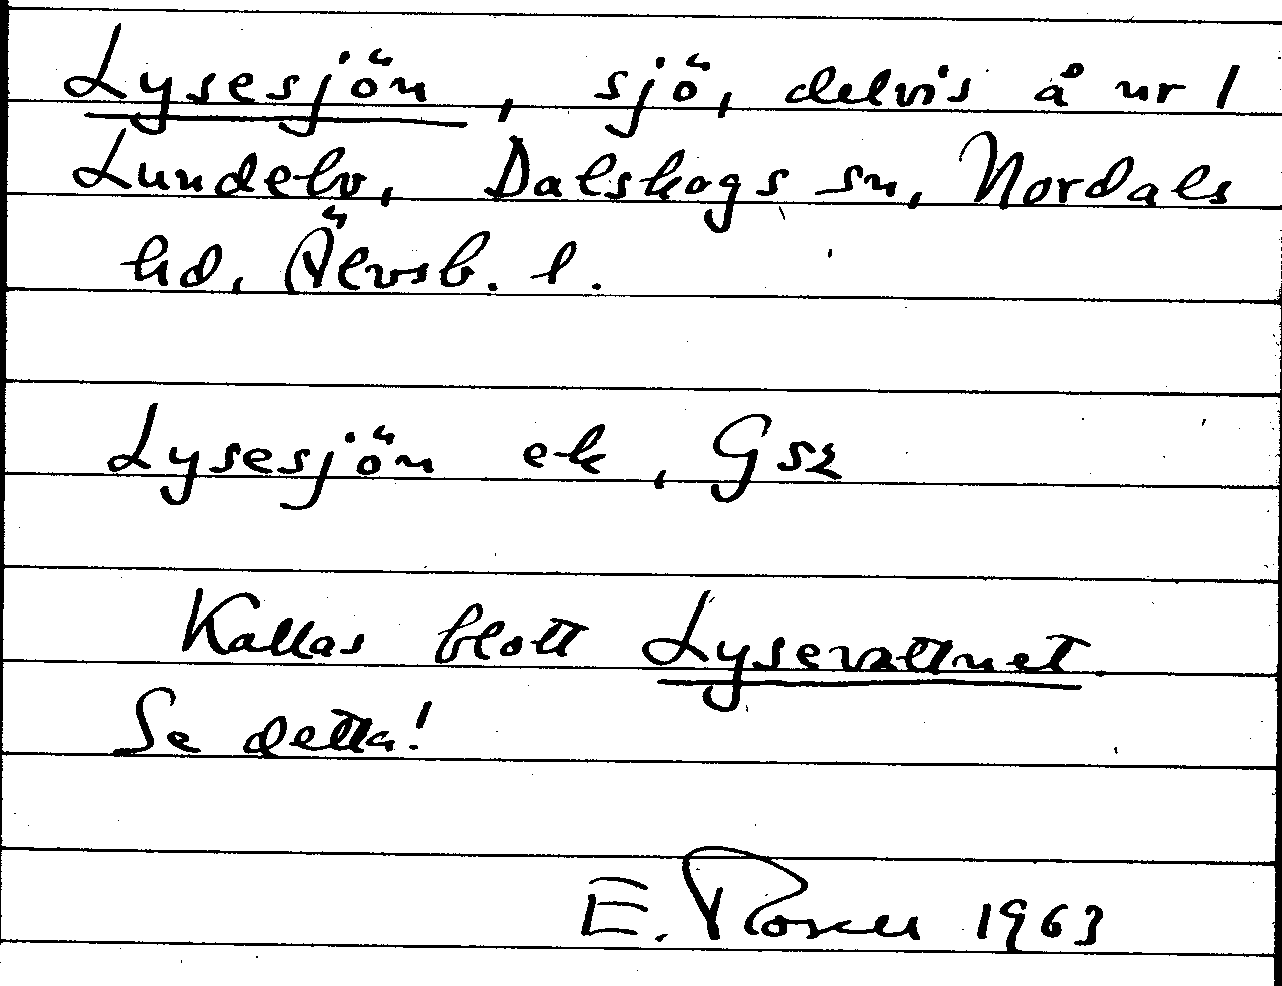 Lysesjön, sjö, delvis å nr 1
Lundebo, Dalskogs sn, Nordals
hd, Älvsb. l.
Lysesjön ek, Gsk
Kallas blott Lysevattnet
Se detta!
E. Rosell 1963